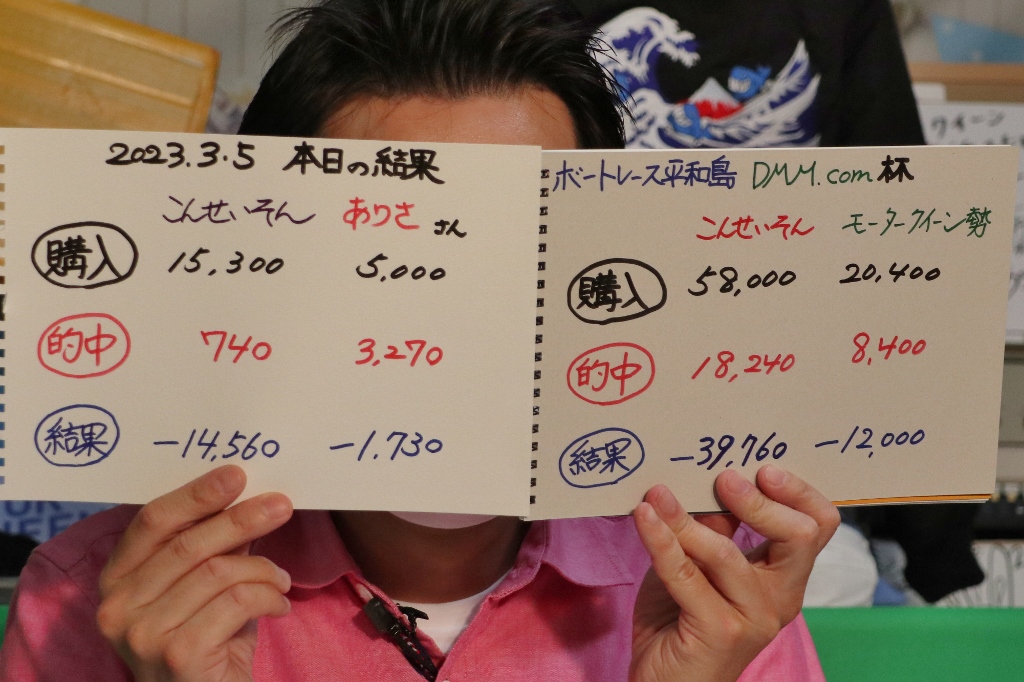 2023.3.5 本日の結果
こんせいそん ありささん
購入 15,300 5,000
的中 740 3,270
結果 -14,560 -1,730
ボートレース平和島 DMM.com杯
こんせいそん モータークイーン勢
購入 58,000 20,400
的中 18,240 8,400
結果 -39,760 -12,000
クイーン